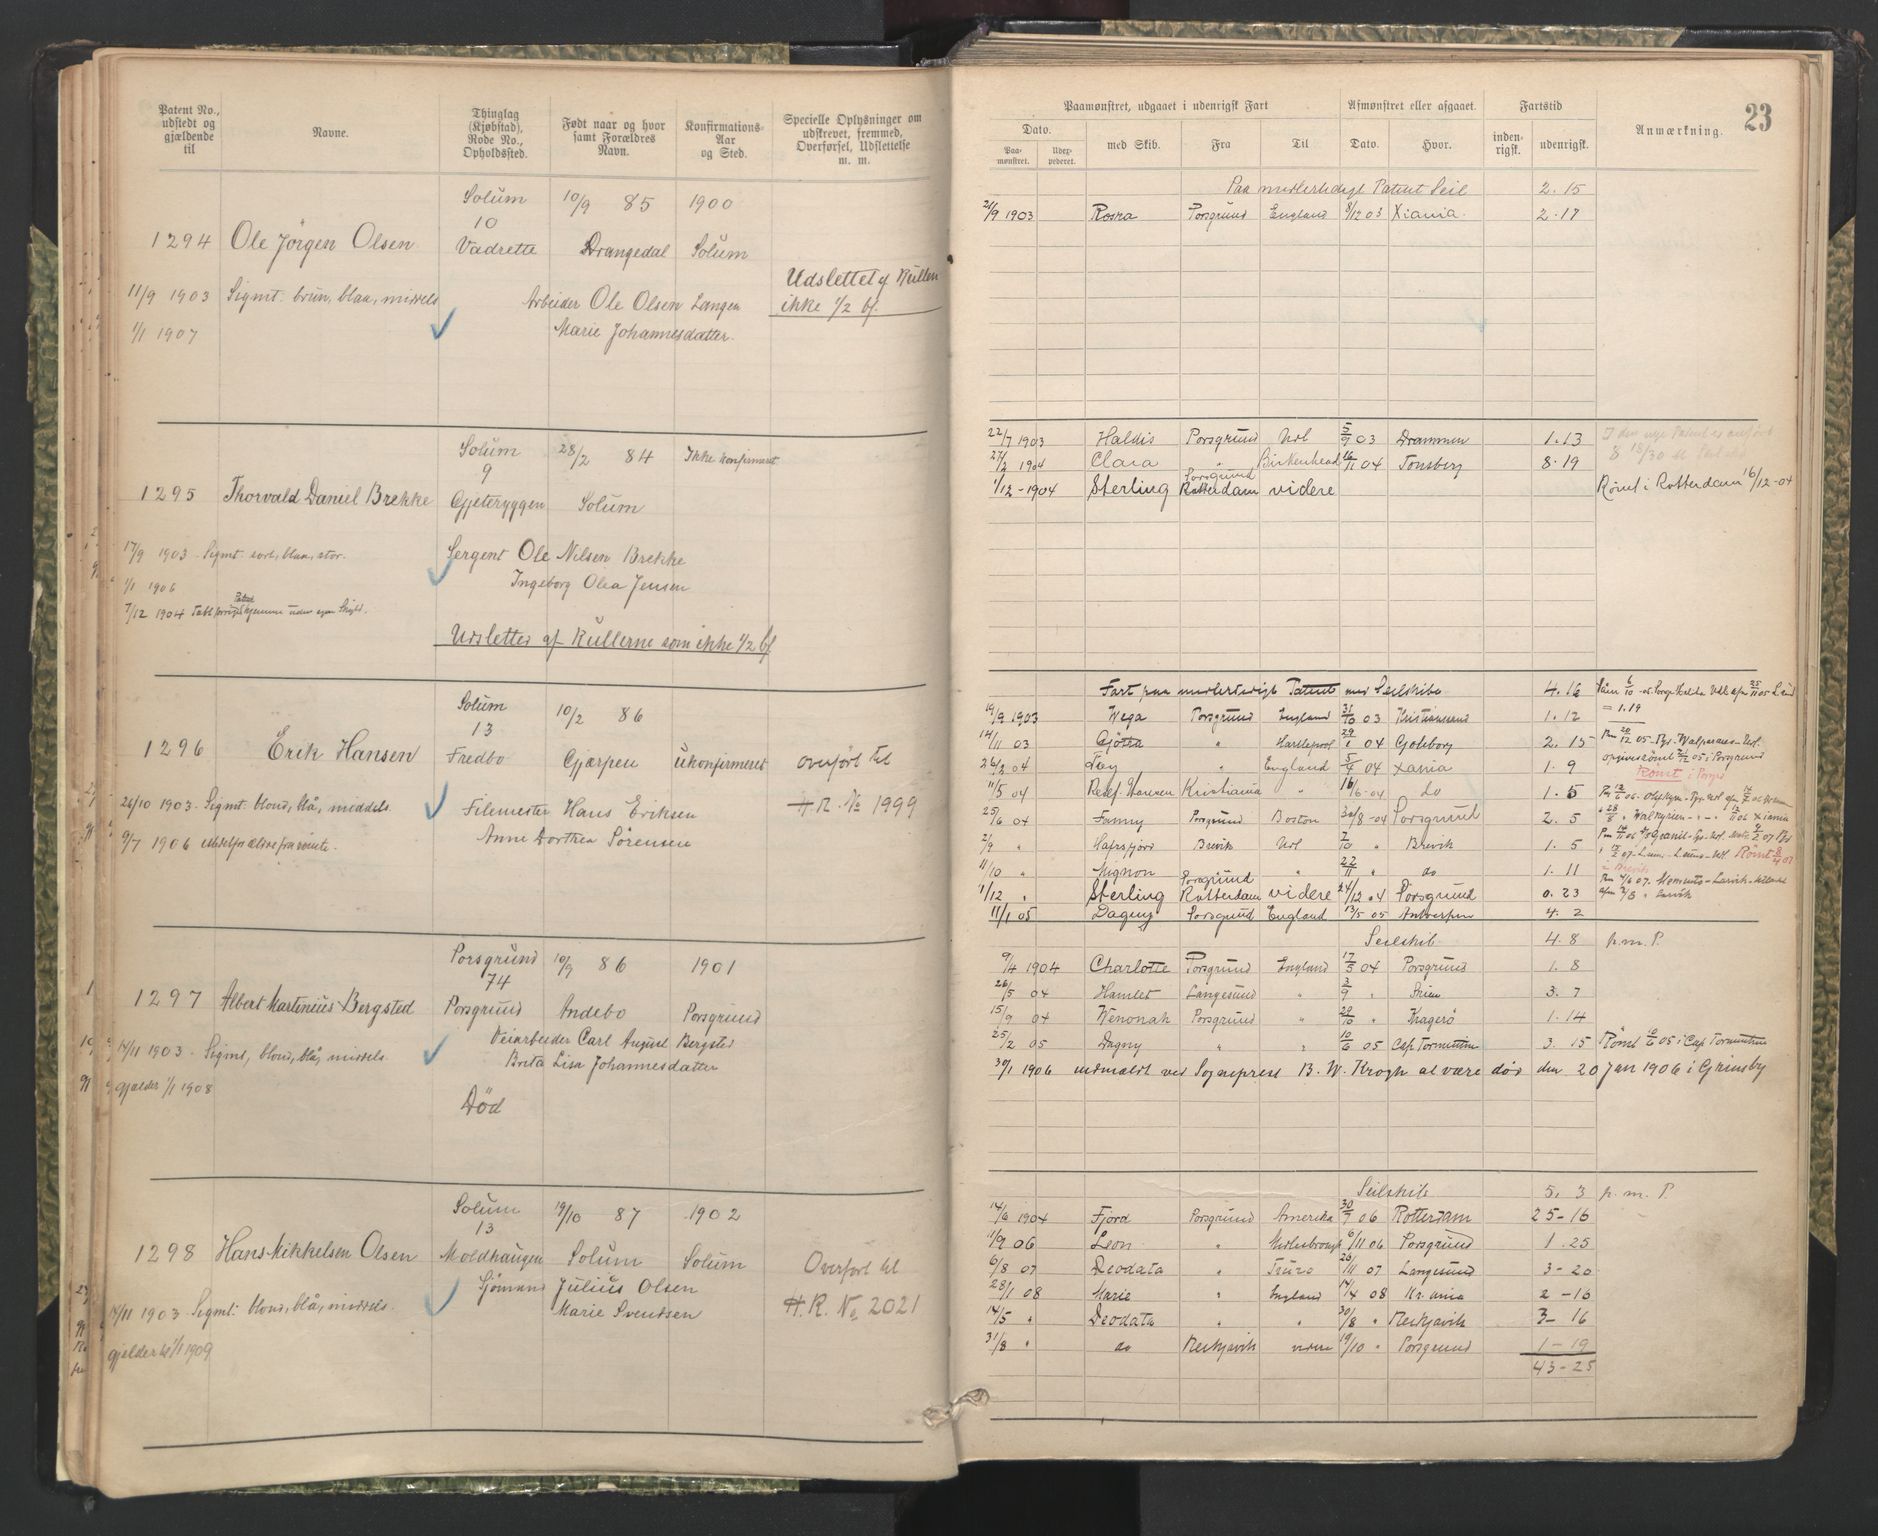 Patent No., udstedt og gjældende til
Navne.
Thinglag (Kjøbstad), Rode No., Opholdssted.
Født naar og hvor samt Forældres Navn.
Konfirmations-Aar og Sted.
Specielle Oplysninger om udskrevet, fremmed, Overførsel, Udslettelse m. m.
Solum 10/9 85 1900
10
1294 Ole Jörgen Olsen Vadrette Drangedal Solum
Udslettet af Rullen
11/9 1903 Sigmt: brun, blaa, middels Arbeider Ole Olsen Langen ikke 1/2 bf.
1/1 1907 Marie Johannesdatter.
Solum 28/2 84 Ikke konfirmeret
9
1295 Thorvald Daniel Brekke Gjeteryggen Solum
17/9 1903 - Sigmt. sort, blaa, stor. Sergent Ole Nilsen Brekke
1/1 1906 Ingeborg Olea Jensen
7/12 1904
Udslettes af Rullerne som ikke 1/2 bf
Solum 10/2 86
13
1296 Erik Hansen Fredbo Gjærpen ukonfirmeret overført til
26/10 1903. Sigmt. blond, blå, middels. Filemester Hans Eriksen H. R. No 1999
9/7 1906 Anne Dorthea Sörensen
Porsgrund 10/9 86 1901
74
1297 Albert Martinius Bergsted Porsgrund Andebo Porsgrund
14/11 1903. Sigmt, blond, blå, middels. Veiarbeider Carl August Bergsted
gjælder 1/1 1908 Brita Lisa Johannesdatter
Död
Solum 19/10 87 1902
13
1298 Hans Mikkelsen Olsen Moldhaugen Solum Solum Overført til
14/11 1903 Sigmt: blond, blå, middels. Sjömand Julius Olsen H. R. No 2021
Marie Svendsen
gjelder til 1/1 1909
23
Paamønstret, udgaaet i udenrigsk Fart
Afmønstret eller afgaaet.
Fartstid
Anmærkning.
Dato.
Paa-mønstret.
Udex-pederet.
med Skib.
Fra
Til
Dato.
Hvor.
inden-rigsk.
udenrigsk.
Paa midlertidigt Patent Seil 2. 15
21/9 1903 Roska Porsgrund England 8/12 03 Xiania. 2. 17
22/7 1903 Haldis Porsgrund Udl 5/9 03 Drammen 1. 13
27/2 1904 Clara " Birkenhead 16/11 04 Tonsberg 8. 19
1/12 - 1904 Sterling Porsgrund Rotterdam videre Römt i Rotterdam 16/12 - 04
Fart paa midlertidigt Patent med Seilskibe 4. 16
19/9 1903 Wega Porsgrund England 31/10 03 Kristianssand 1. 12 = 1.19
14/11 03 Gjötra " Hartlepool 29/1 04 Goteborg 2. 15
26/2 04 Fay " England 5/4 04 Xania 1. 9
Römt i Porsgr
11/5 04 Kristiania " 16/6 - 04 do 1. 5
25/6 04 Fanny Porsgrund Boston 30/8 - 04 Porsgrund 2. 5
2/9 " Hafrsfjord Brevik Udl 7/10 " Brevik 1. 5
11/10 " Mignon Porsgrund " 22/11 " do 1. 11
1/12 " Sterling Rotterdam videre 24/12 04 Porsgrund 0. 23
11/1 05 Dagny Porsgrund England 13/5 05 Antwerpen 4. 2
Seilskib. 4. 8 p. m. P.
9/4 1904 Charlotte Porsgrund England 17/5 04 Porsgrund 1. 8
26/5 04 Hamlet Langesund " 3/9 " Skien 3. 7
15/9 04 Wenonah Porsgrund " 29/10 " Kragerö 1. 14
25/2 05 Dagny " " 10/6 05 Cap Tormentine 3. 15 Römt 10/6 05 i Cap Tormentine
30/1 1906 indmeldt ved Sogneprest B. W. Krogh at være död den 20 Jan 1906 i Grimsby
Seilskib 5. 3 p. m. P.
14/6 1904 Fjord Porsgrund Amerika 30/7 06 Rotterdam 25-16
11/9 06 Leon " Midlesbrough 6/11 06 Porsgrund 1. 25
6/8 07 Deodata " Truro 26/11 07 Langesund 3-20
28/1 08 Marie " England 14/4 08 Kr. ania 2 -16
14/5 " Deodata " " 30/8 " Reikjavik 3- 16
31/8 " do Reikjavik videre 19/10 " Porsgrund 1 - 19
43-25